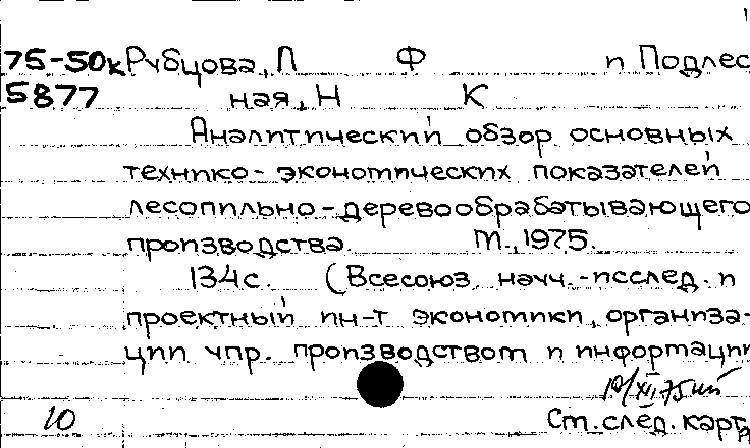 75-50к Рубцова, Л Ф и Подлес
5877 ная, Н К
Аналитический обзор основных
технико-экономических показателей
лесопильно-деревообрабатывающего
производства. М., 1975.
134с. (Всесоюз. науч.-исслед. и
проектный ин-т экономики, организа-
ции упр. производством и информации
19/XII.75
10 См. след. карт